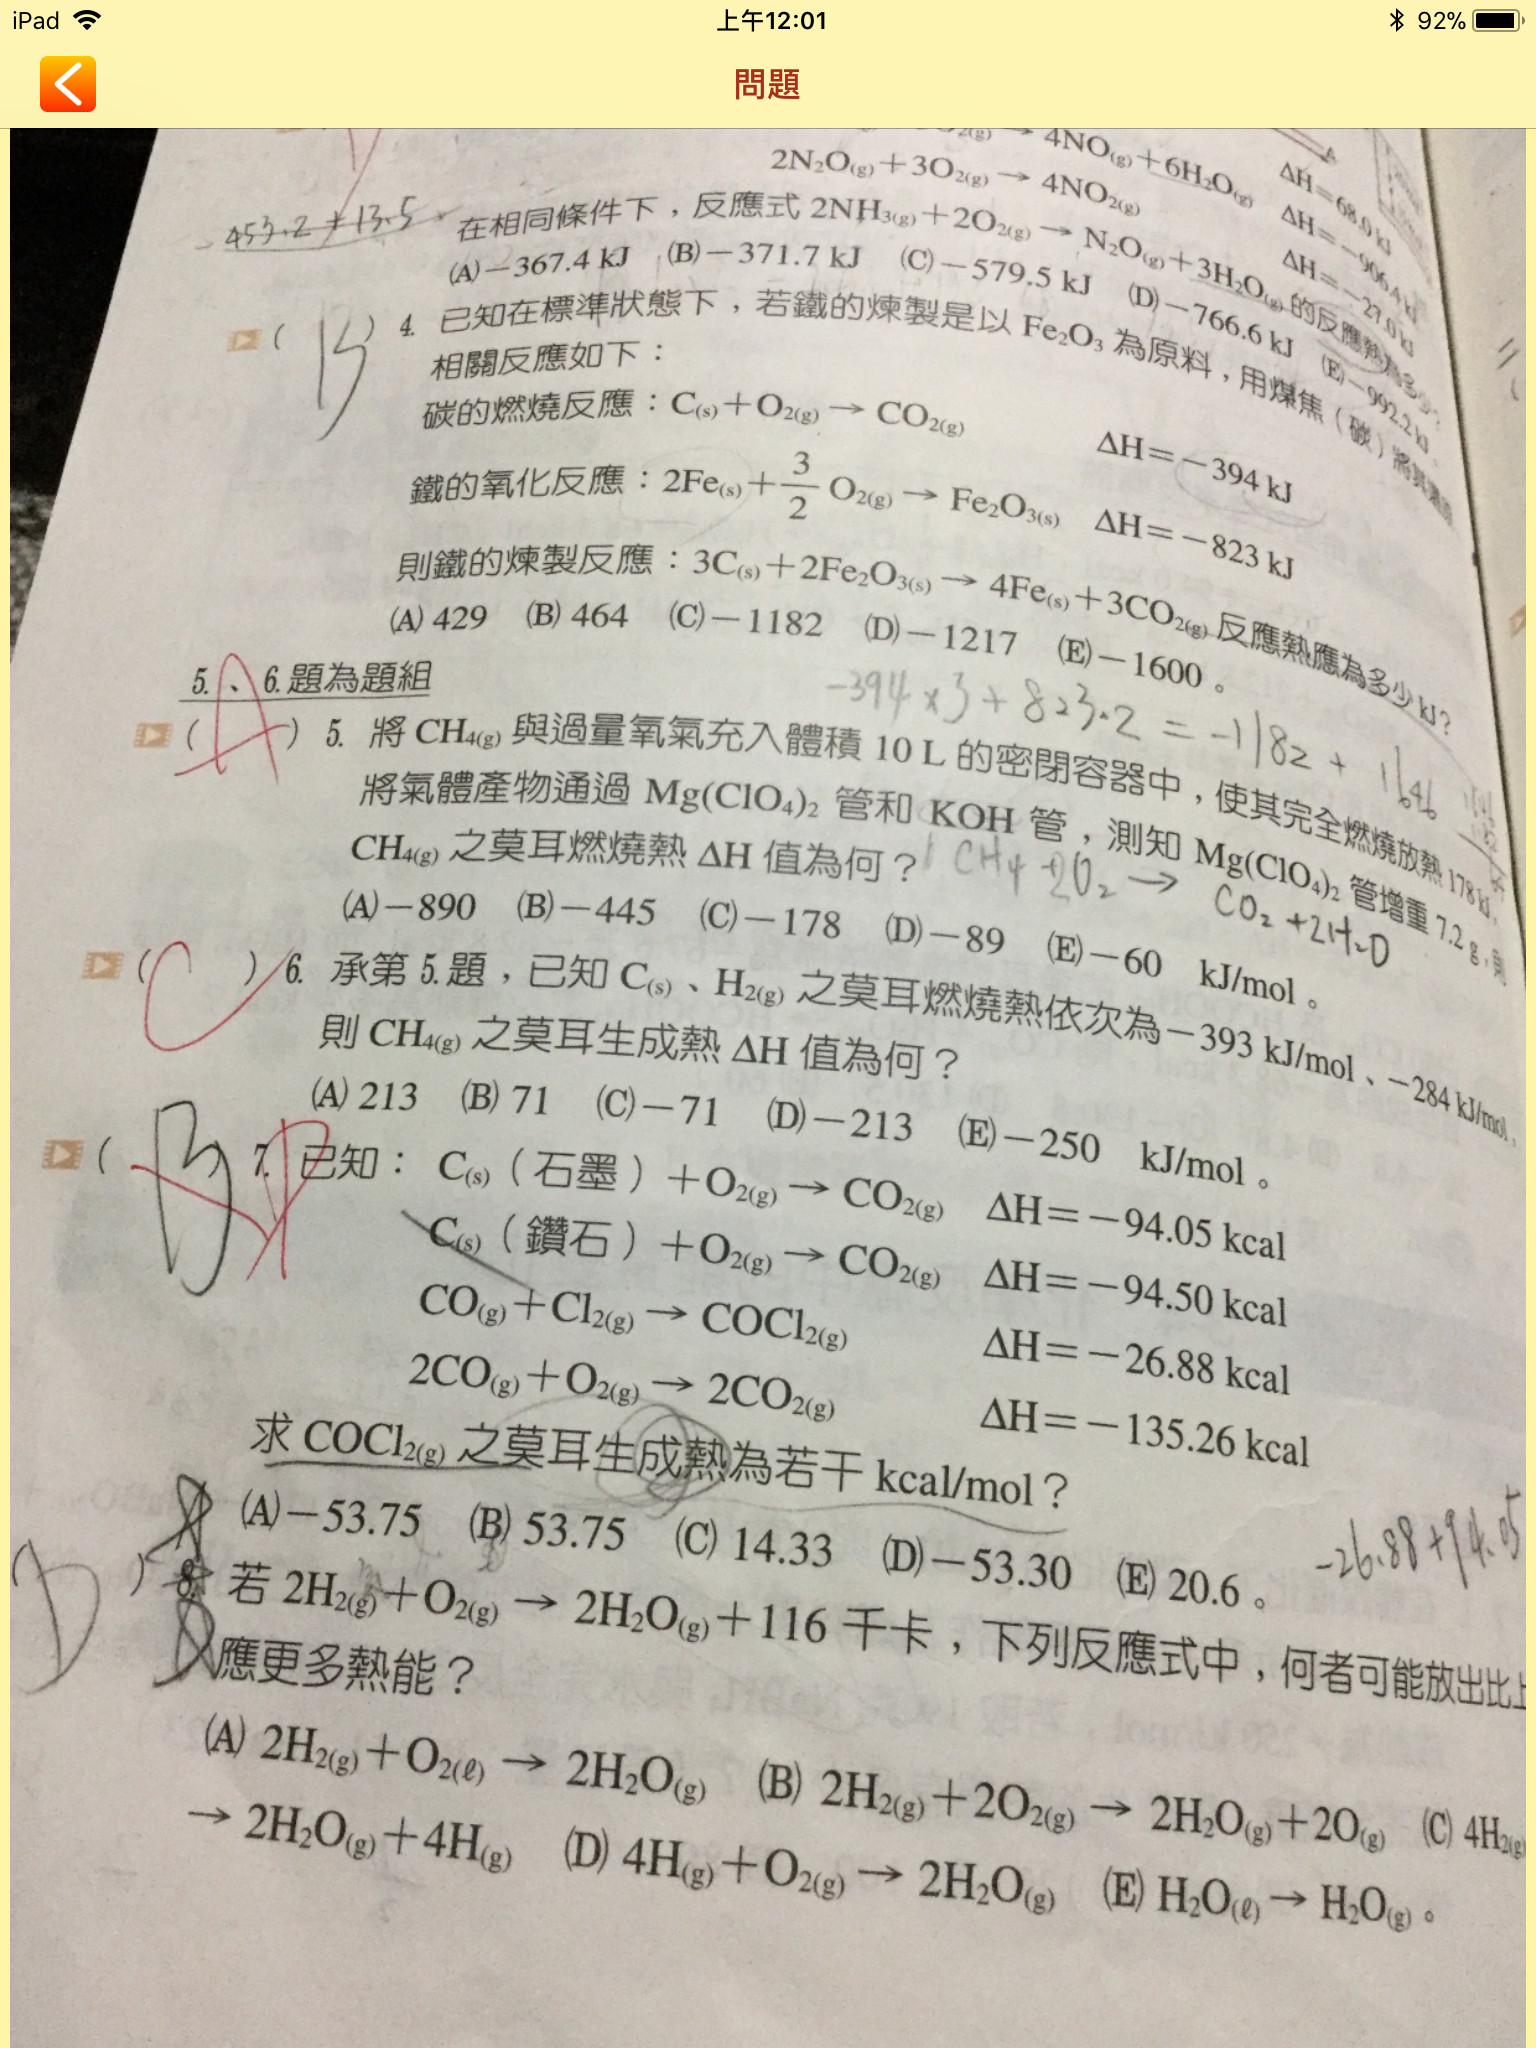 iPad
上午12:01
92%
問題
4NO(g)+6H₂O(g) ΔH=68.0 kJ
2N₂O(g)+3O₂(g) → 4NO₂(g) ΔH=-906.4 kJ
ΔH=-27.0 kJ
453.2 13.5
在相同條件下，反應式 2NH₃(g)+2O₂(g) → N₂O(g)+3H₂O(g) 的反應熱為多少？
(A)-367.4 kJ (B)-371.7 kJ (C)-579.5 kJ (D)-766.6 kJ (E)-992.2 kJ
( B ) 4. 已知在標準狀態下，若鐵的煉製是以 Fe₂O₃ 為原料，用煤焦（碳）將其
相關反應如下：
碳的燃燒反應：C(s)+O₂(g) → CO₂(g) ΔH=-394 kJ
鐵的氧化反應：2Fe(s)+3/2 O₂(g) → Fe₂O₃(s) ΔH=-823 kJ
則鐵的煉製反應：3C(s)+2Fe₂O₃(s) → 4Fe(s)+3CO₂(g) 反應熱應為多少 kJ？
(A) 429 (B) 464 (C)-1182 (D)-1217 (E)-1600。
-394×3+823×2 = -1182 + 1646
5.、6.題為題組
( A ) 5. 將 CH₄(g) 與過量氧氣充入體積 10 L 的密閉容器中，使其完全燃燒放熱 178 kJ，
將氣體產物通過 Mg(ClO₄)₂ 管和 KOH 管，測知 Mg(ClO₄)₂ 管增重 7.2 g，則
CH₄(g) 之莫耳燃燒熱 ΔH 值為何？
CH₄ + 2O₂ → CO₂ + 2H₂O
(A)-890 (B)-445 (C)-178 (D)-89 (E)-60 kJ/mol。
( C ) 6. 承第 5.題，已知 C(s)、H₂(g) 之莫耳燃燒熱依次為-393 kJ/mol、-284 kJ/mol，
則 CH₄(g) 之莫耳生成熱 ΔH 值為何？
(A) 213 (B) 71 (C)-71 (D)-213 (E)-250 kJ/mol。
( B 7. 已知： C(s)（石墨）+O₂(g) → CO₂(g) ΔH=-94.05 kcal
C(s)（鑽石）+O₂(g) → CO₂(g) ΔH=-94.50 kcal
CO(g)+Cl₂(g) → COCl₂(g) ΔH=-26.88 kcal
2CO(g)+O₂(g) → 2CO₂(g) ΔH=-135.26 kcal
求 COCl₂(g) 之莫耳生成熱為若干 kcal/mol？
(A)-53.75 (B) 53.75 (C) 14.33 (D)-53.30 (E) 20.6。
-26.88+94.05
D ) 8. 若 2H₂(g)+O₂(g) → 2H₂O(g)+116 千卡，下列反應式中，何者可能放出比上
應更多熱能？
(A) 2H₂(g)+O₂(ℓ) → 2H₂O(g) (B) 2H₂(g)+2O₂(g) → 2H₂O(g)+2O(g) (C) 4H₂(g)
→ 2H₂O(g)+4H(g) (D) 4H(g)+O₂(g) → 2H₂O(g) (E) H₂O(ℓ) → H₂O(g)。